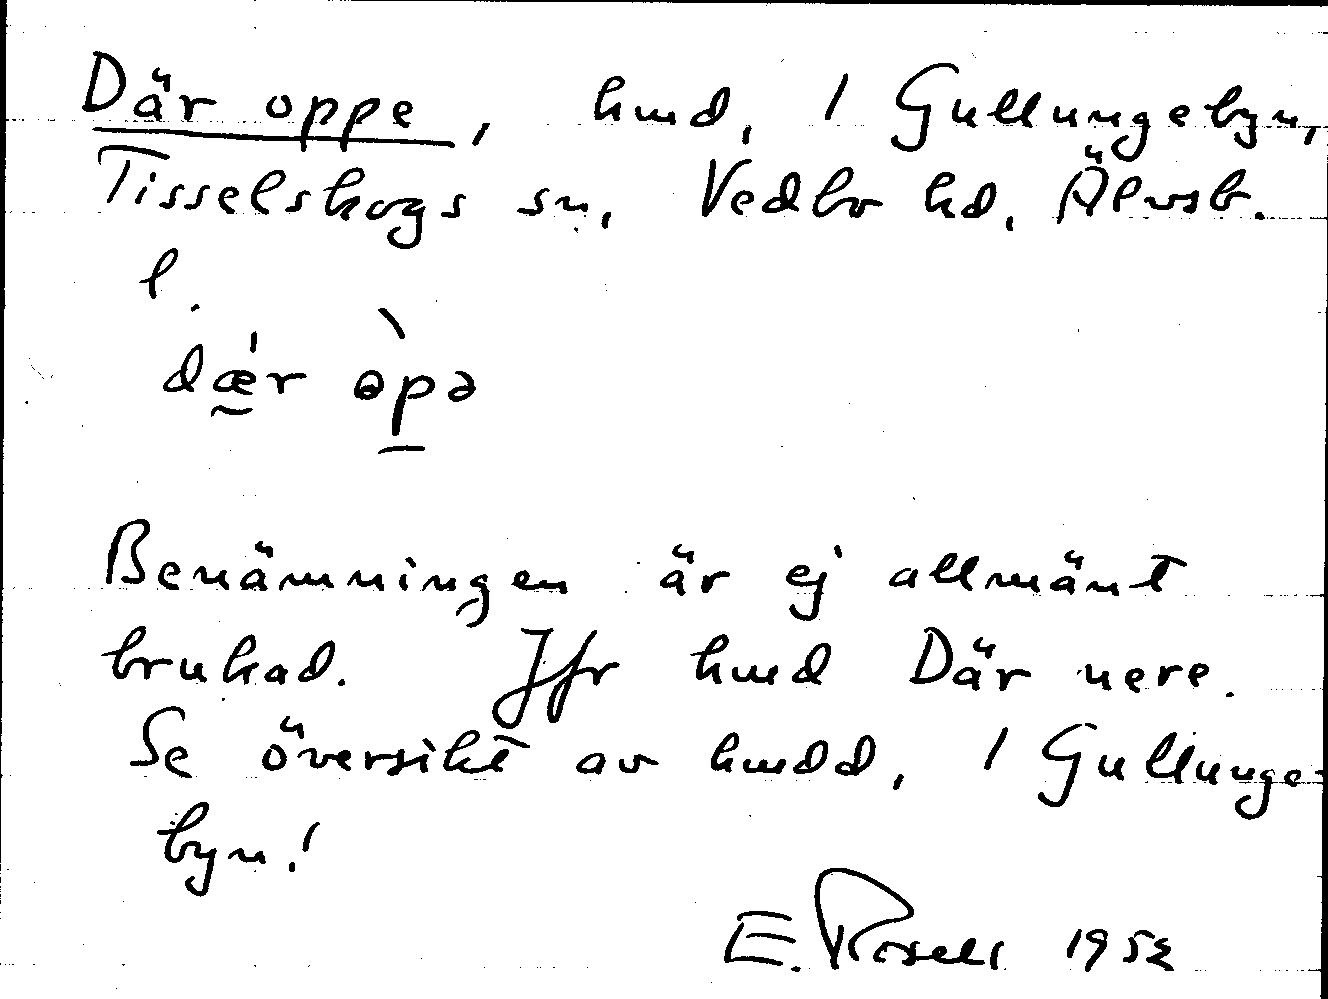 Där oppe, hmd, 1 Gullungebyn,
Tisselskogs sn, Vedbo hd, Älvsb.
l.
dǽ̲r òp̲ə
Benämningen är ej allmänt
brukad. Jfr hmd Där nere.
Se översikt av hmdd, 1 Gullunge-
byn!
E. Rosell 1952